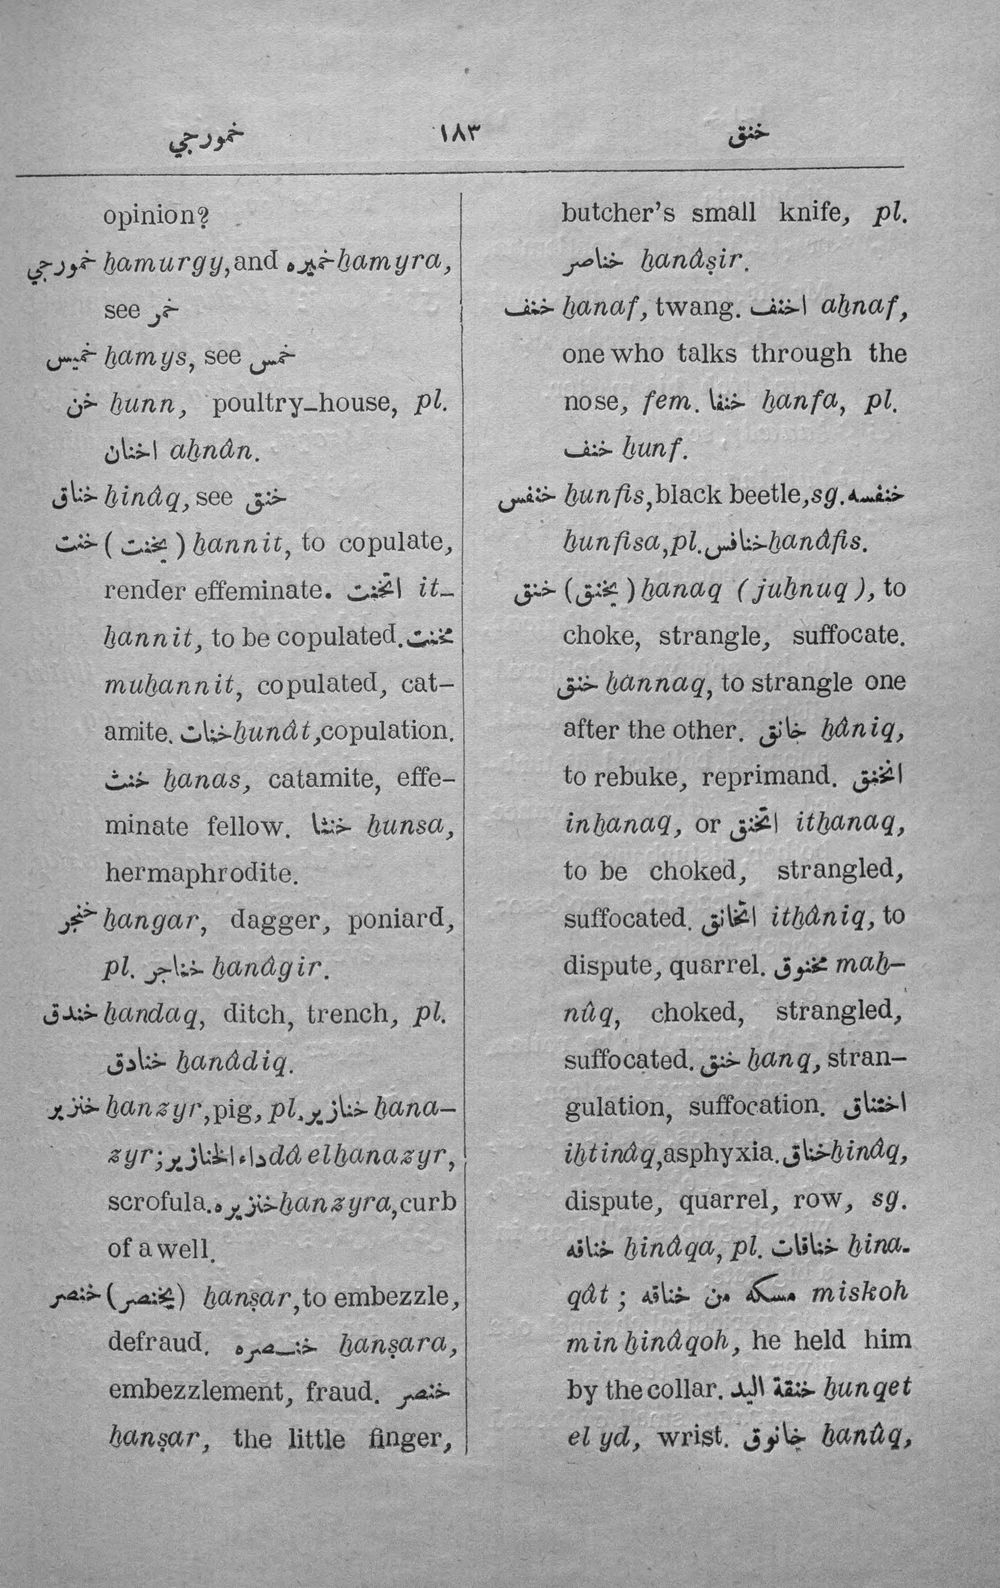 خمورجي ١٨٣ خنق
opinion?
خمورجي ẖamurgy, and خميره ẖamyra,
see خمر
خميس ẖamys, see خمس
خن ẖunn, poultry-house, pl.
اخنان aẖnân.
خناق ẖinâq, see خنق
خنت (يخنت) ẖannit, to copulate,
render effeminate. اتخنت it-
ẖannit, to be copulated. مخنت
muẖannit, copulated, cat-
amite. خنات ẖunât, copulation.
خنث ẖanas, catamite, effe-
minate fellow. خنثا ẖunsa,
hermaphrodite.
خنجر ẖangar, dagger, poniard,
pl. خناجر ẖanâgir.
خندق ẖandaq, ditch, trench, pl.
خنادق ẖanâdiq.
خنزير ẖanzyr, pig, pl. خنازير ẖana-
zyr; داء الخنازير dâ elẖanazyr,
scrofula. خنزيره ẖanzyra, curb
of a well.
خنصر (يخنصر) ẖanṣar, to embezzle,
defraud. خنـصره ẖanṣara,
embezzlement, fraud. خنصر
ẖanṣar, the little finger,
butcher's small knife, pl.
خناصر ẖanâṣir.
خنف ẖanaf, twang. اخنف aẖnaf,
one who talks through the
nose, fem. خنفا ẖanfa, pl.
خنف ẖunf.
خنفس ẖunfis, black beetle, sg. خنفسه
ẖunfisa, pl. خنافس ẖanâfis.
خنق (يخنق) ẖanaq (juẖnuq), to
choke, strangle, suffocate.
خنق ẖannaq, to strangle one
after the other. خانق ẖâniq,
to rebuke, reprimand. انخنق
inẖanaq, or اتخنق itẖanaq,
to be choked, strangled,
suffocated. اتخانق itẖâniq, to
dispute, quarrel. مخنوق maẖ-
nûq, choked, strangled,
suffocated. خنق ẖanq, stran-
gulation, suffocation. اختناق
iẖtinâq, asphyxia. خناق ẖinâq,
dispute, quarrel, row, sg.
خناقه ẖinâqa, pl. خناقات ẖina-
qât; مسكه من خناقه miskoh
min ẖinâqoh, he held him
by the collar. خنقة اليد ẖunqet
el yd, wrist. خانوق ẖanûq,